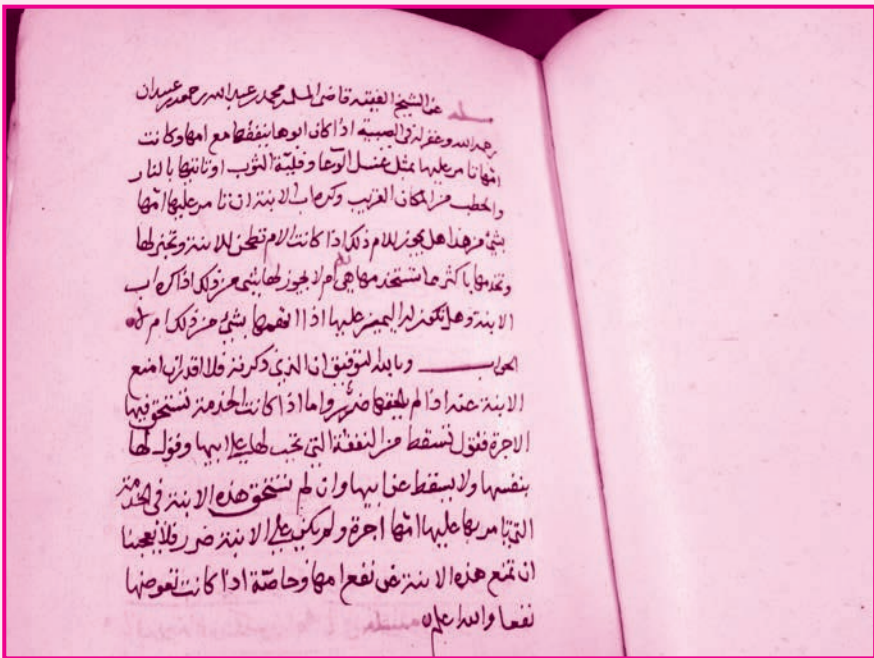 مسئلة عن الشيخ الفقيه قاضي المسلمين محمد بن عبدالله بن احمد بن عبيدان
رحمه الله وغفر له في الصبية اذا كان ابوها ينفقها مع امها وكانت
امها تامر عليها بمثل غسل الوعا وقلبة الثوب او تاتيها بالنار
والحطب من المكان القريب وكره اب الابنة ان تامر عليها امها
بشئ من هذا هل يجوز للام ذلك اذا كانت الام تطحن للابنة وتخبز لها
وتخدمها باكثر مما تستخدمها هي ام لا يجوز لها بشئ من ذلك اذا كره اب
الابنة وهل تكون له اليمين عليها اذا اتهمها بشئ من ذلك ام لا
الجواب وبالله التوفيق ان الذي ذكرته فلا اقدر ان امنع
الابنة عنه اذا لم يلحقها ضرر واما اذا كانت الخدمة تستحق فيها
الاجرة فقول تسقط من النفقة التي تجب لها على ابيها وقول لها
بنفسها ولا يسقط عن ابيها وان لم تستحق هذه الابنة في الخدمة
التي تامر بها عليها امها اجرة ولم يكن على الابنة ضرر فلا يعجبنا
ان تمنع هذه الابنة عن نفع امها وخاصة اذا كانت تعوضها
نفعا والله اعلم